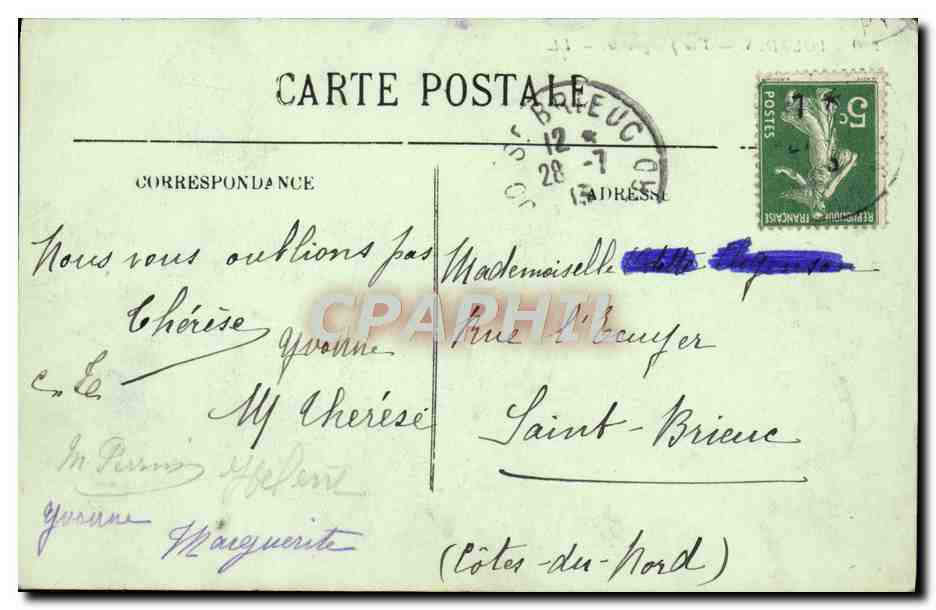 CARTE POSTALE
ST BRIEUC
12
28 -7
13
5c
POSTES
REPUBLIQUE FRANÇAISE
CORRESPONDANCE
ADRESSE
Nous vous oublions pas
Thérèse
Yvonne
M Thérése
Hélène
Yvonne
Marguerite
Mademoiselle
Rue l'Ecuyer
Saint-Brieuc
(Côtes-du-Nord)
CPAPHIL